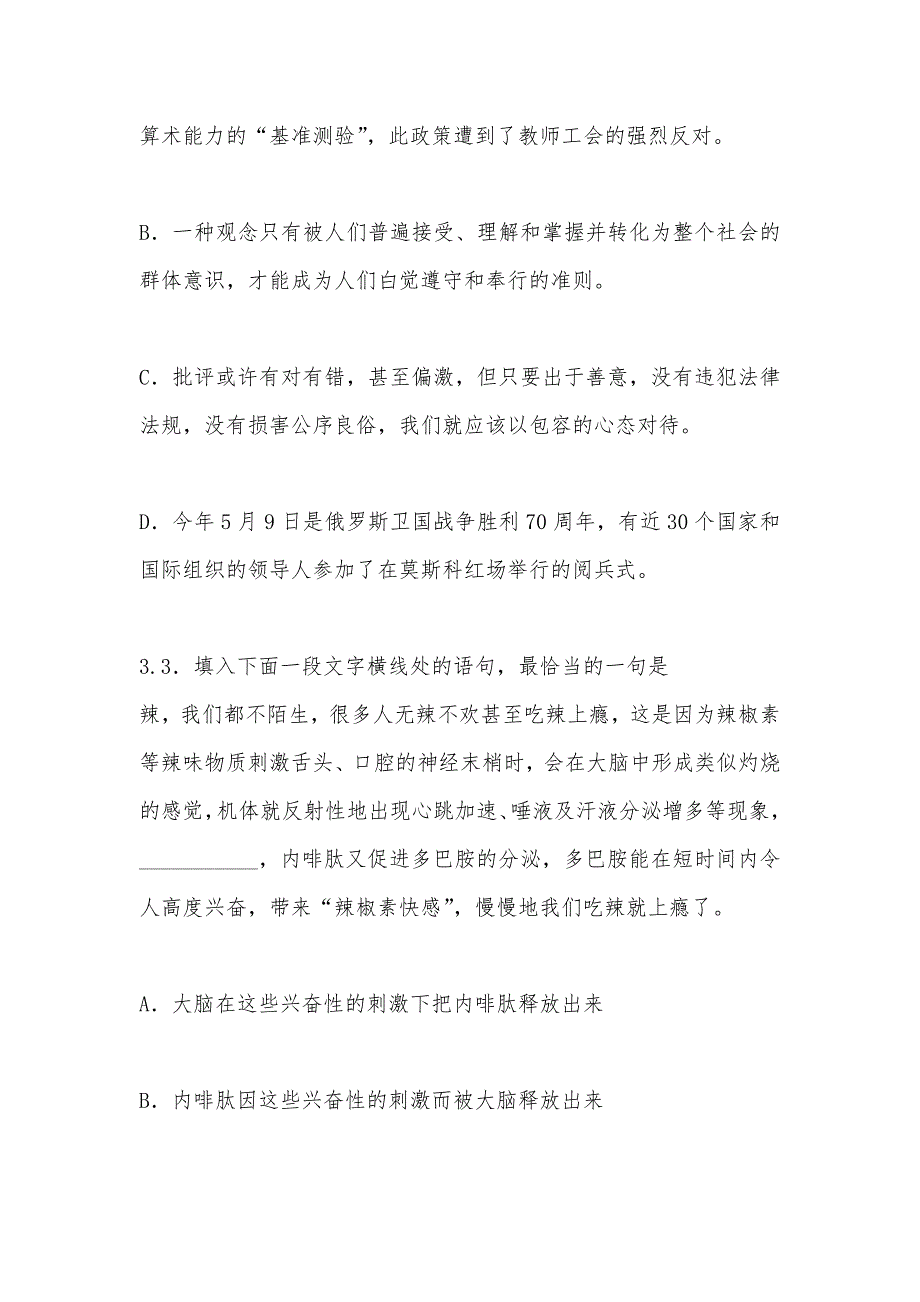 算术能力的“基准测验”，此政策遭到了教师工会的强烈反对。
B．一种观念只有被人们普遍接受、理解和掌握并转化为整个社会的
群体意识，才能成为人们白觉遵守和奉行的准则。
C．批评或许有对有错，甚至偏激，但只要出于善意，没有违犯法律
法规，没有损害公序良俗，我们就应该以包容的心态对待。
D．今年 5 月 9 日是俄罗斯卫国战争胜利 70 周年，有近 30 个国家和
国际组织的领导人参加了在莫斯科红场举行的阅兵式。
3.3．填入下面一段文字横线处的语句，最恰当的一句是
辣，我们都不陌生，很多人无辣不欢甚至吃辣上瘾，这是因为辣椒素
等辣味物质刺激舌头、口腔的神经末梢时，会在大脑中形成类似灼烧
的感觉，机体就反射性地出现心跳加速、唾液及汗液分泌增多等现象，
___________，内啡肽又促进多巴胺的分泌，多巴胺能在短时间内令
人高度兴奋，带来“辣椒素快感”，慢慢地我们吃辣就上瘾了。
A．大脑在这些兴奋性的刺激下把内啡肽释放出来
B．内啡肽因这些兴奋性的刺激而被大脑释放出来